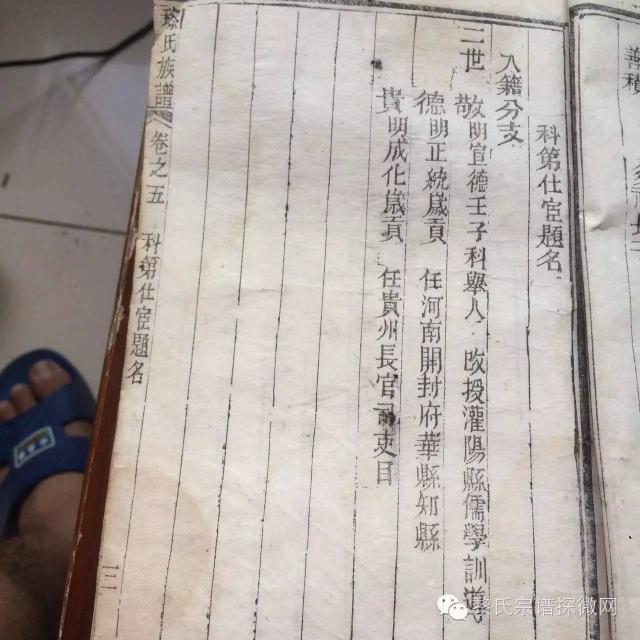 科第仕宦題名
入籍分支
二世 敬明宣德壬子科舉人 改授灌陽縣儒學訓導
德明正統歲貢 任河南開封府華縣知縣
貴明成化歲貢 任貴州長官司吏目
族譜 卷之五 科第仕宦題名 三
氏宗谱探微网